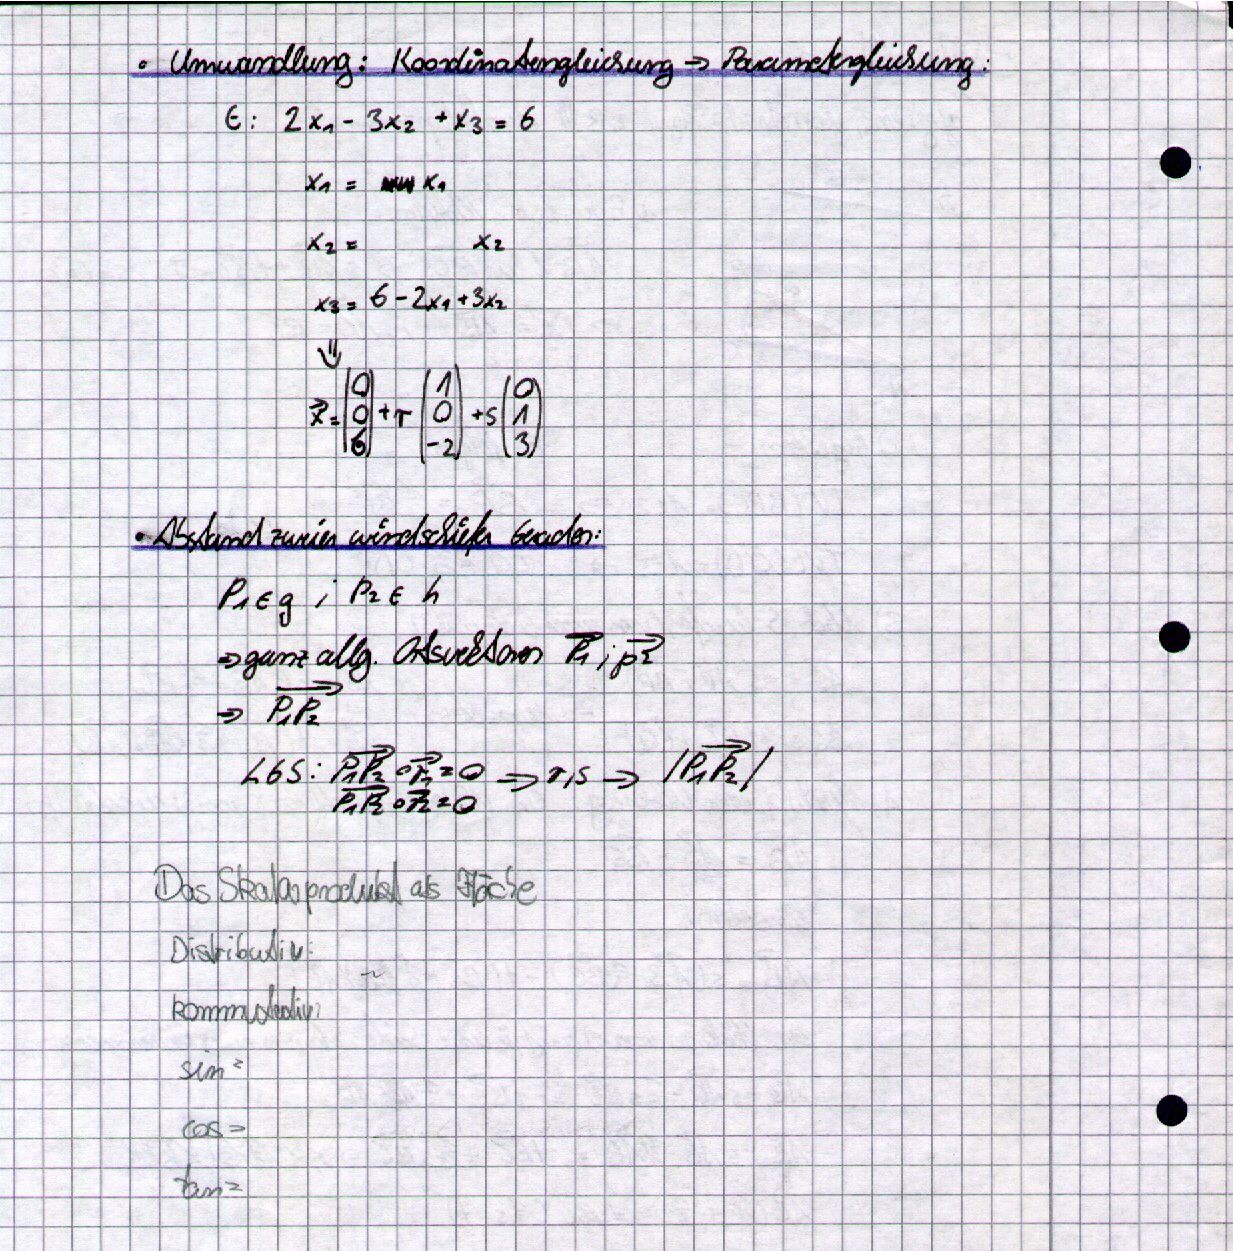 • Umwandlung: Koordinatengleichung → Parametergleichung:
E: 2x₁ - 3x₂ + x₃ = 6
x₁ = x₁
x₂ = x₂
x₃ = 6 - 2x₁ + 3x₂
⇓
x⃗ = (0 0 6) + r (1 0 -2) + s (0 1 3)
• Abstand zweier windschiefer Geraden:
P₁ ∈ g ; P₂ ∈ h
⇒ ganz allg. Ortsvektoren p₁⃗ ; p₂⃗
⇒ P₁P₂⃗
LGS: P₁P₂⃗ ∘ r₁⃗ = 0 ⇒ r, s ⇒ |P₁P₂⃗|
P₁P₂⃗ ∘ r₂⃗ = 0
Das Skalarprodukt als Fläche
Distributiv:
kommutativ:
sin =
cos =
tan =